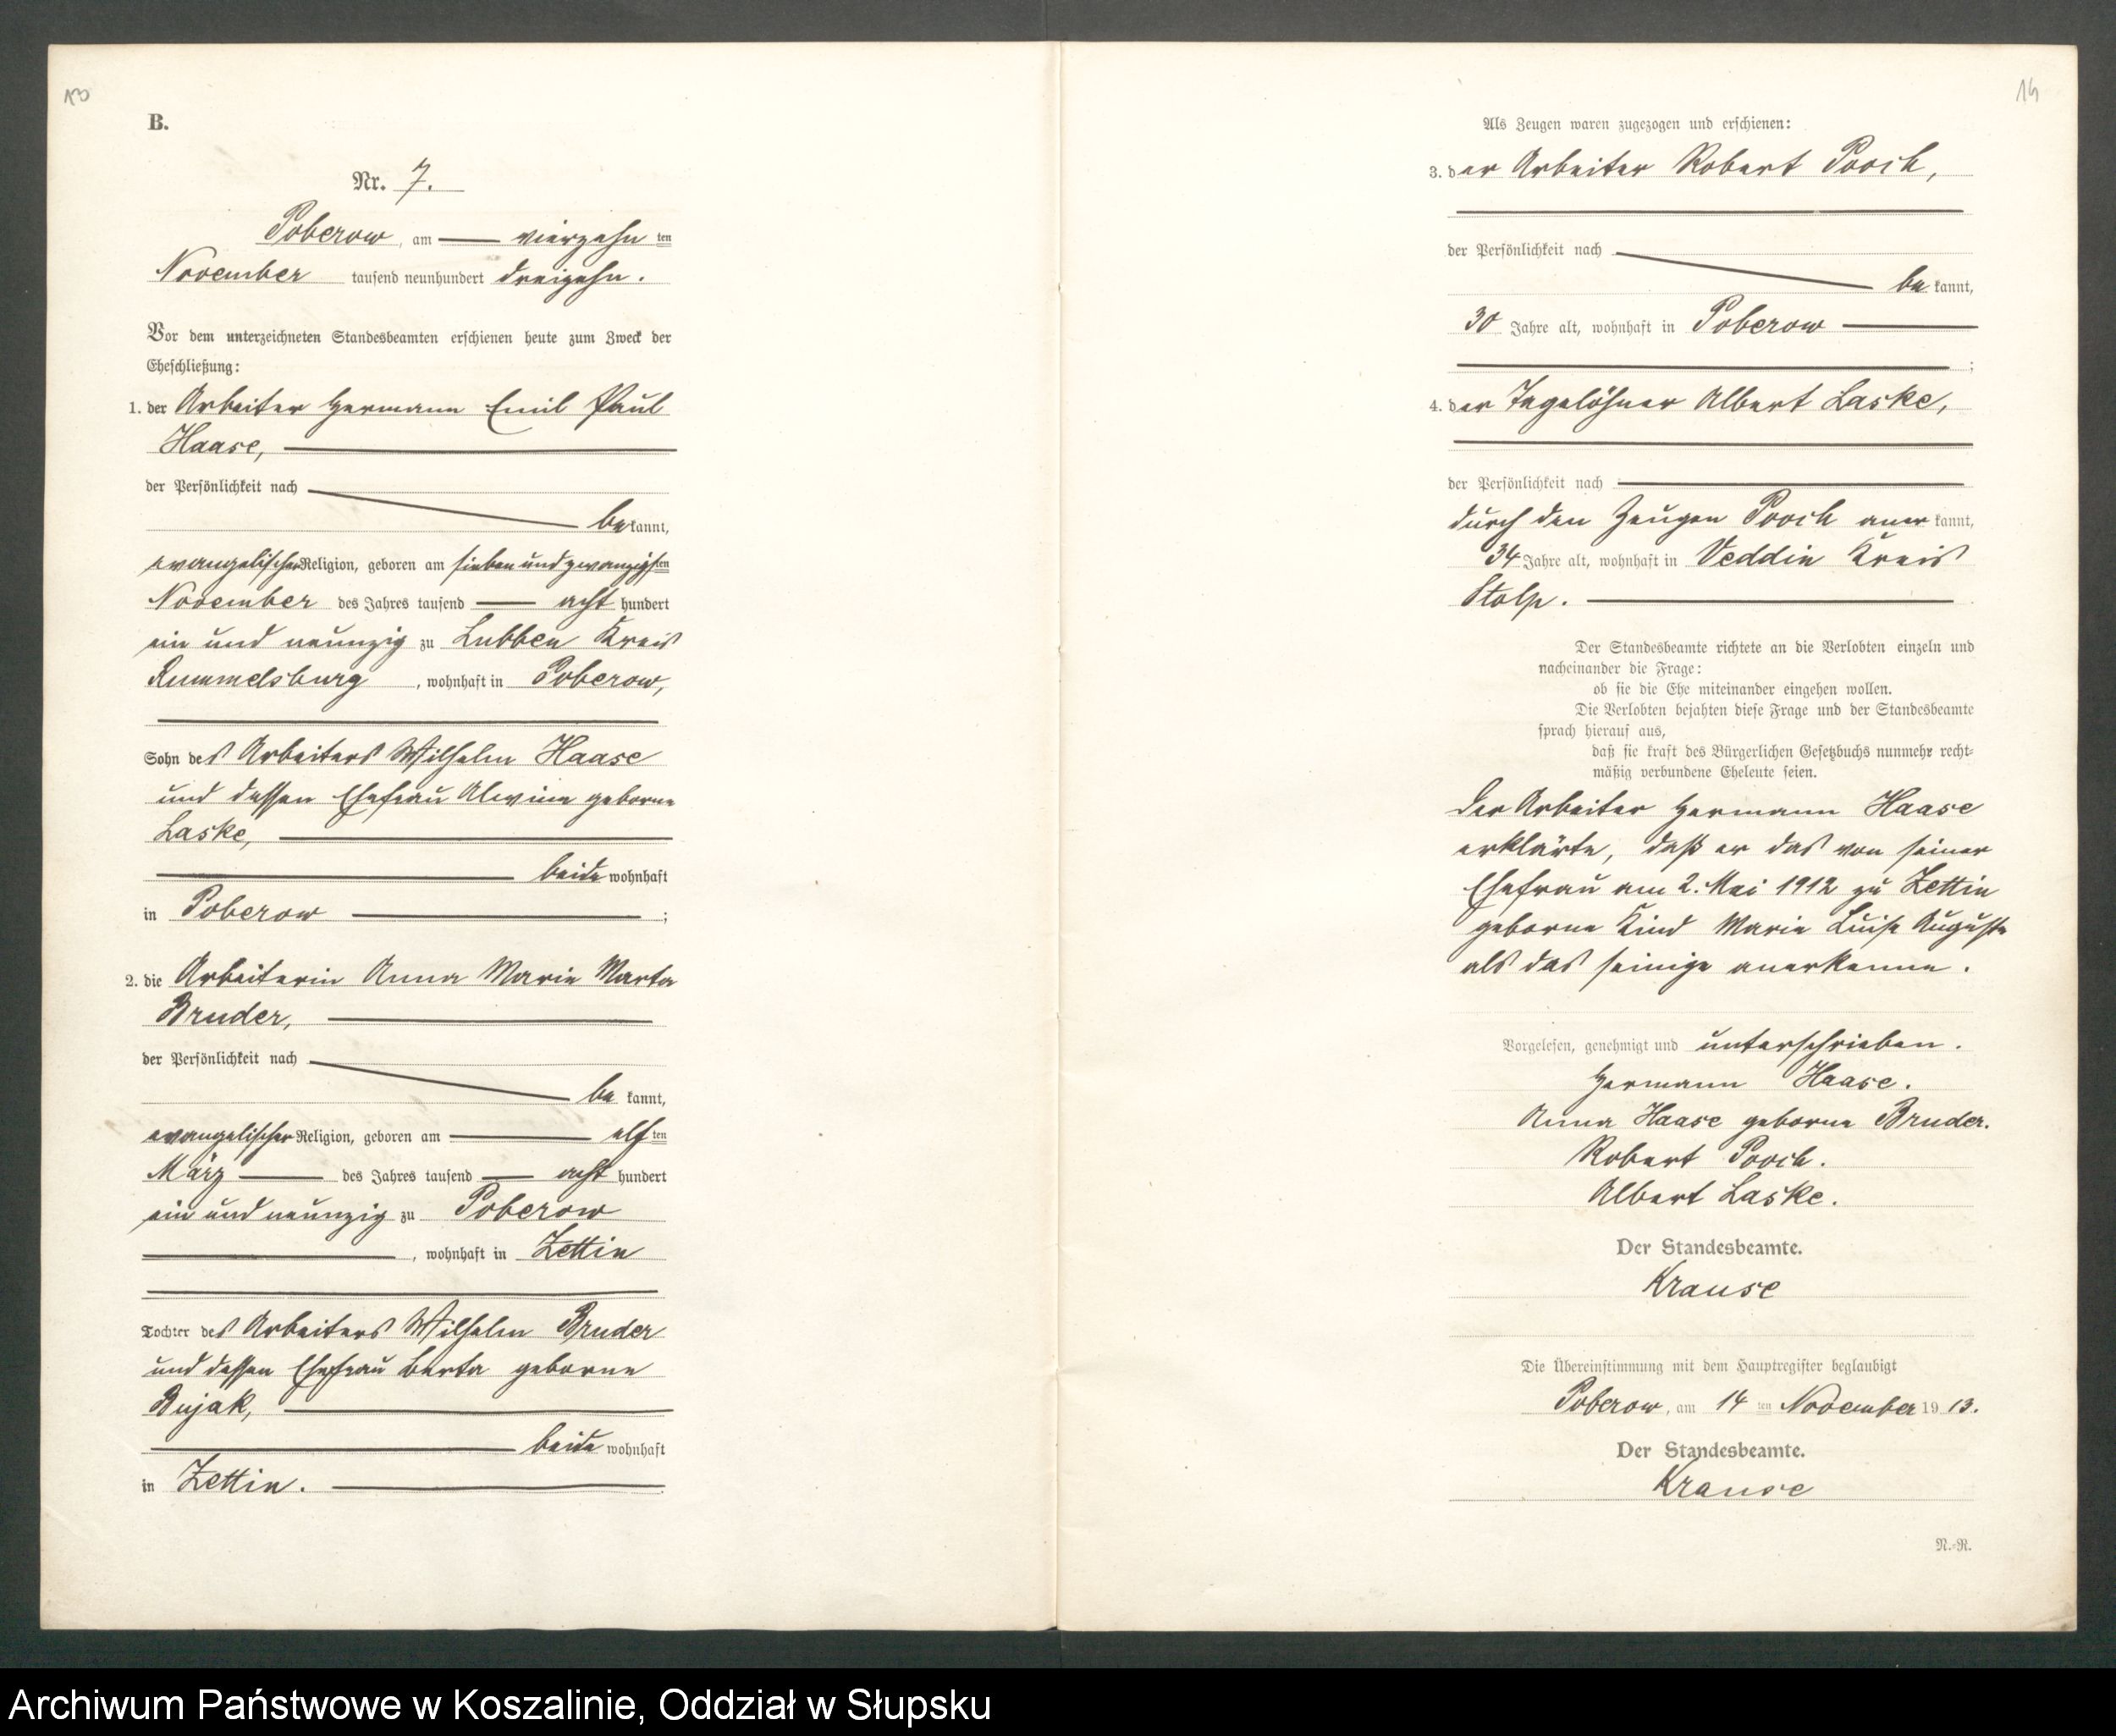 13
B.
Nr. 7.
Poberow, am vierzehnten
November tausend neunhundert dreizehn.
Vor dem unterzeichneten Standesbeamten erschienen heute zum Zweck der
Eheschließung:
1. der Arbeiter Hermann Emil Paul
Haase,
der Persönlichkeit nach
bekannt,
evangelischer Religion, geboren am sieben und zwanzigsten
November des Jahres tausend acht hundert
ein und neunzig zu Lubben Kreis
Rummelsburg, wohnhaft in Poberow,
Sohn des Arbeiters Wilhelm Haase
und dessen Ehefrau Alwine geborne
Laske,
beide wohnhaft
in Poberow ;
2. die Arbeiterin Anna Marie Marta
Bruder,
der Persönlichkeit nach
bekannt,
evangelischer Religion, geboren am elften
März des Jahres tausend acht hundert
ein und neunzig zu Poberow
, wohnhaft in Zettin
Tochter des Arbeiters Wilhelm Bruder
und dessen Ehefrau Berta geborne
Bujak,
beide wohnhaft
in Zettin.
14
Als Zeugen waren zugezogen und erschienen:
3. der Arbeiter Robert Pooch,
der Persönlichkeit nach
bekannt,
30 Jahre alt, wohnhaft in Poberow
;
4. der Tagelöhner Albert Laske,
der Persönlichkeit nach
durch den Zeugen Pooch anerkannt,
34 Jahre alt, wohnhaft in Veddin Kreis
Stolp.
Der Standesbeamte richtete an die Verlobten einzeln und
nacheinander die Frage:
ob sie die Ehe miteinander eingehen wollen.
Die Verlobten bejahten diese Frage und der Standesbeamte
sprach hierauf aus,
daß sie kraft des Bürgerlichen Gesetzbuchs nunmehr recht-
mäßig verbundene Eheleute seien.
Der Arbeiter Hermann Haase
erklärte, daß er das von seiner
Ehefrau am 2. Mai 1912 zu Zettin
geborne Kind Marie Luise Auguste
als das seinige anerkenne.
Vorgelesen, genehmigt und unterschrieben.
Hermann Haase.
Anna Haase geborne Bruder.
Robert Pooch.
Albert Laske.
Der Standesbeamte.
Krause
Die Übereinstimmung mit dem Hauptregister beglaubigt
Poberow, am 14 ten November 1913.
Der Standesbeamte.
Krause
N.-R.
Archiwum Państwowe w Koszalinie, Oddział w Słupsku